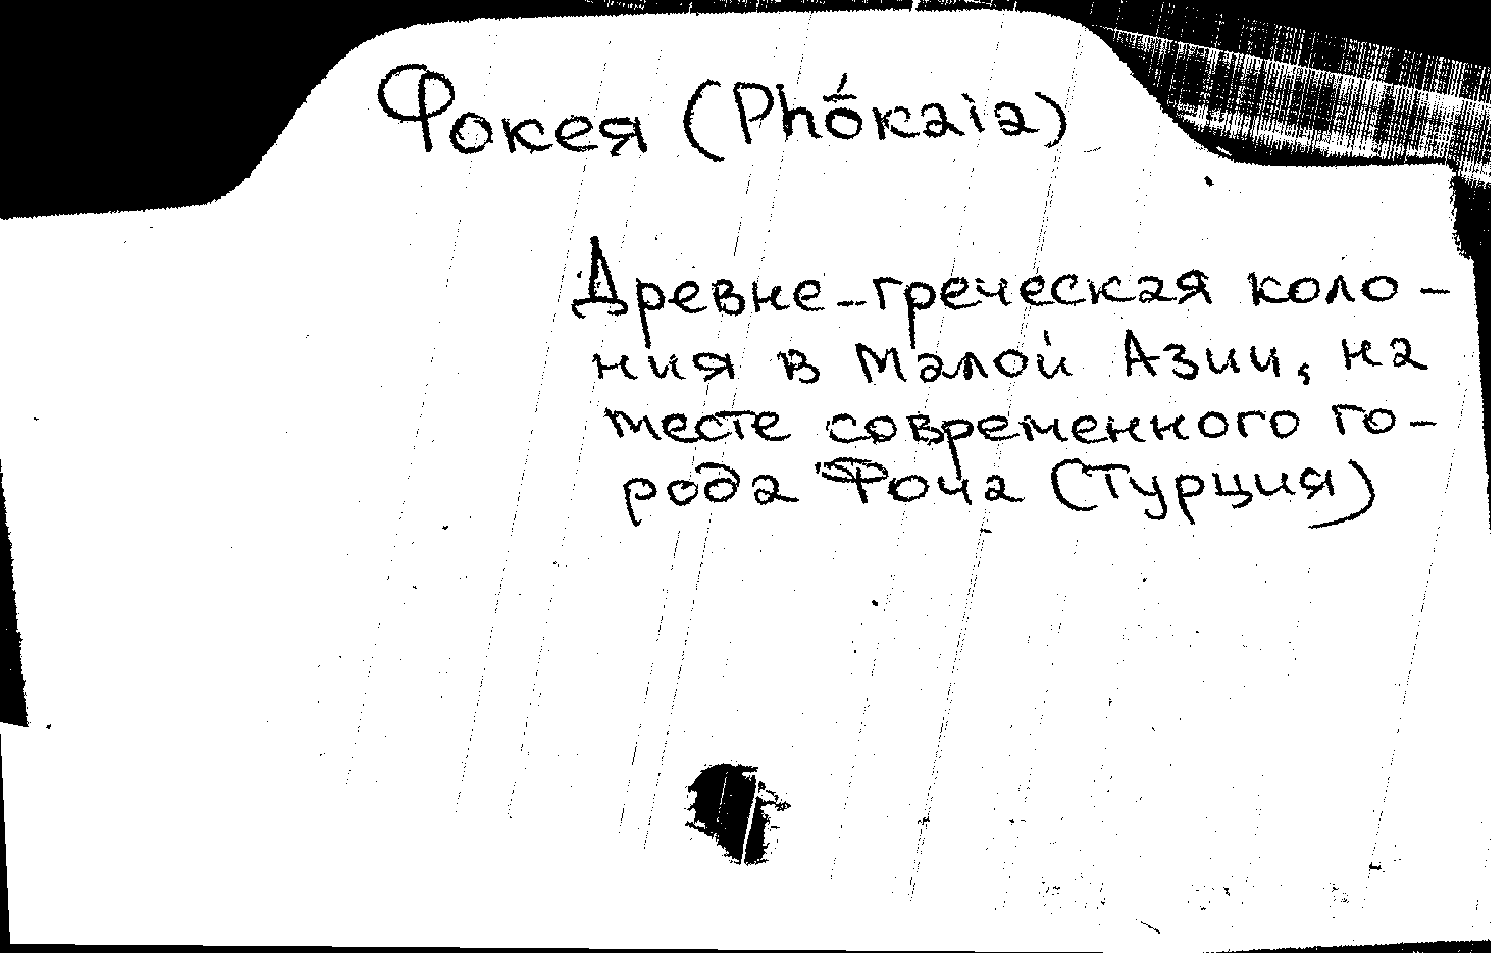 Фокея (Phṓkaia)
Древне-греческая коло-
ния в Малой Азии, на
месте современного го-
рода Фоча (Турция)